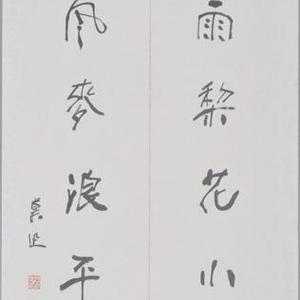 雨梨花小
风麦浪平